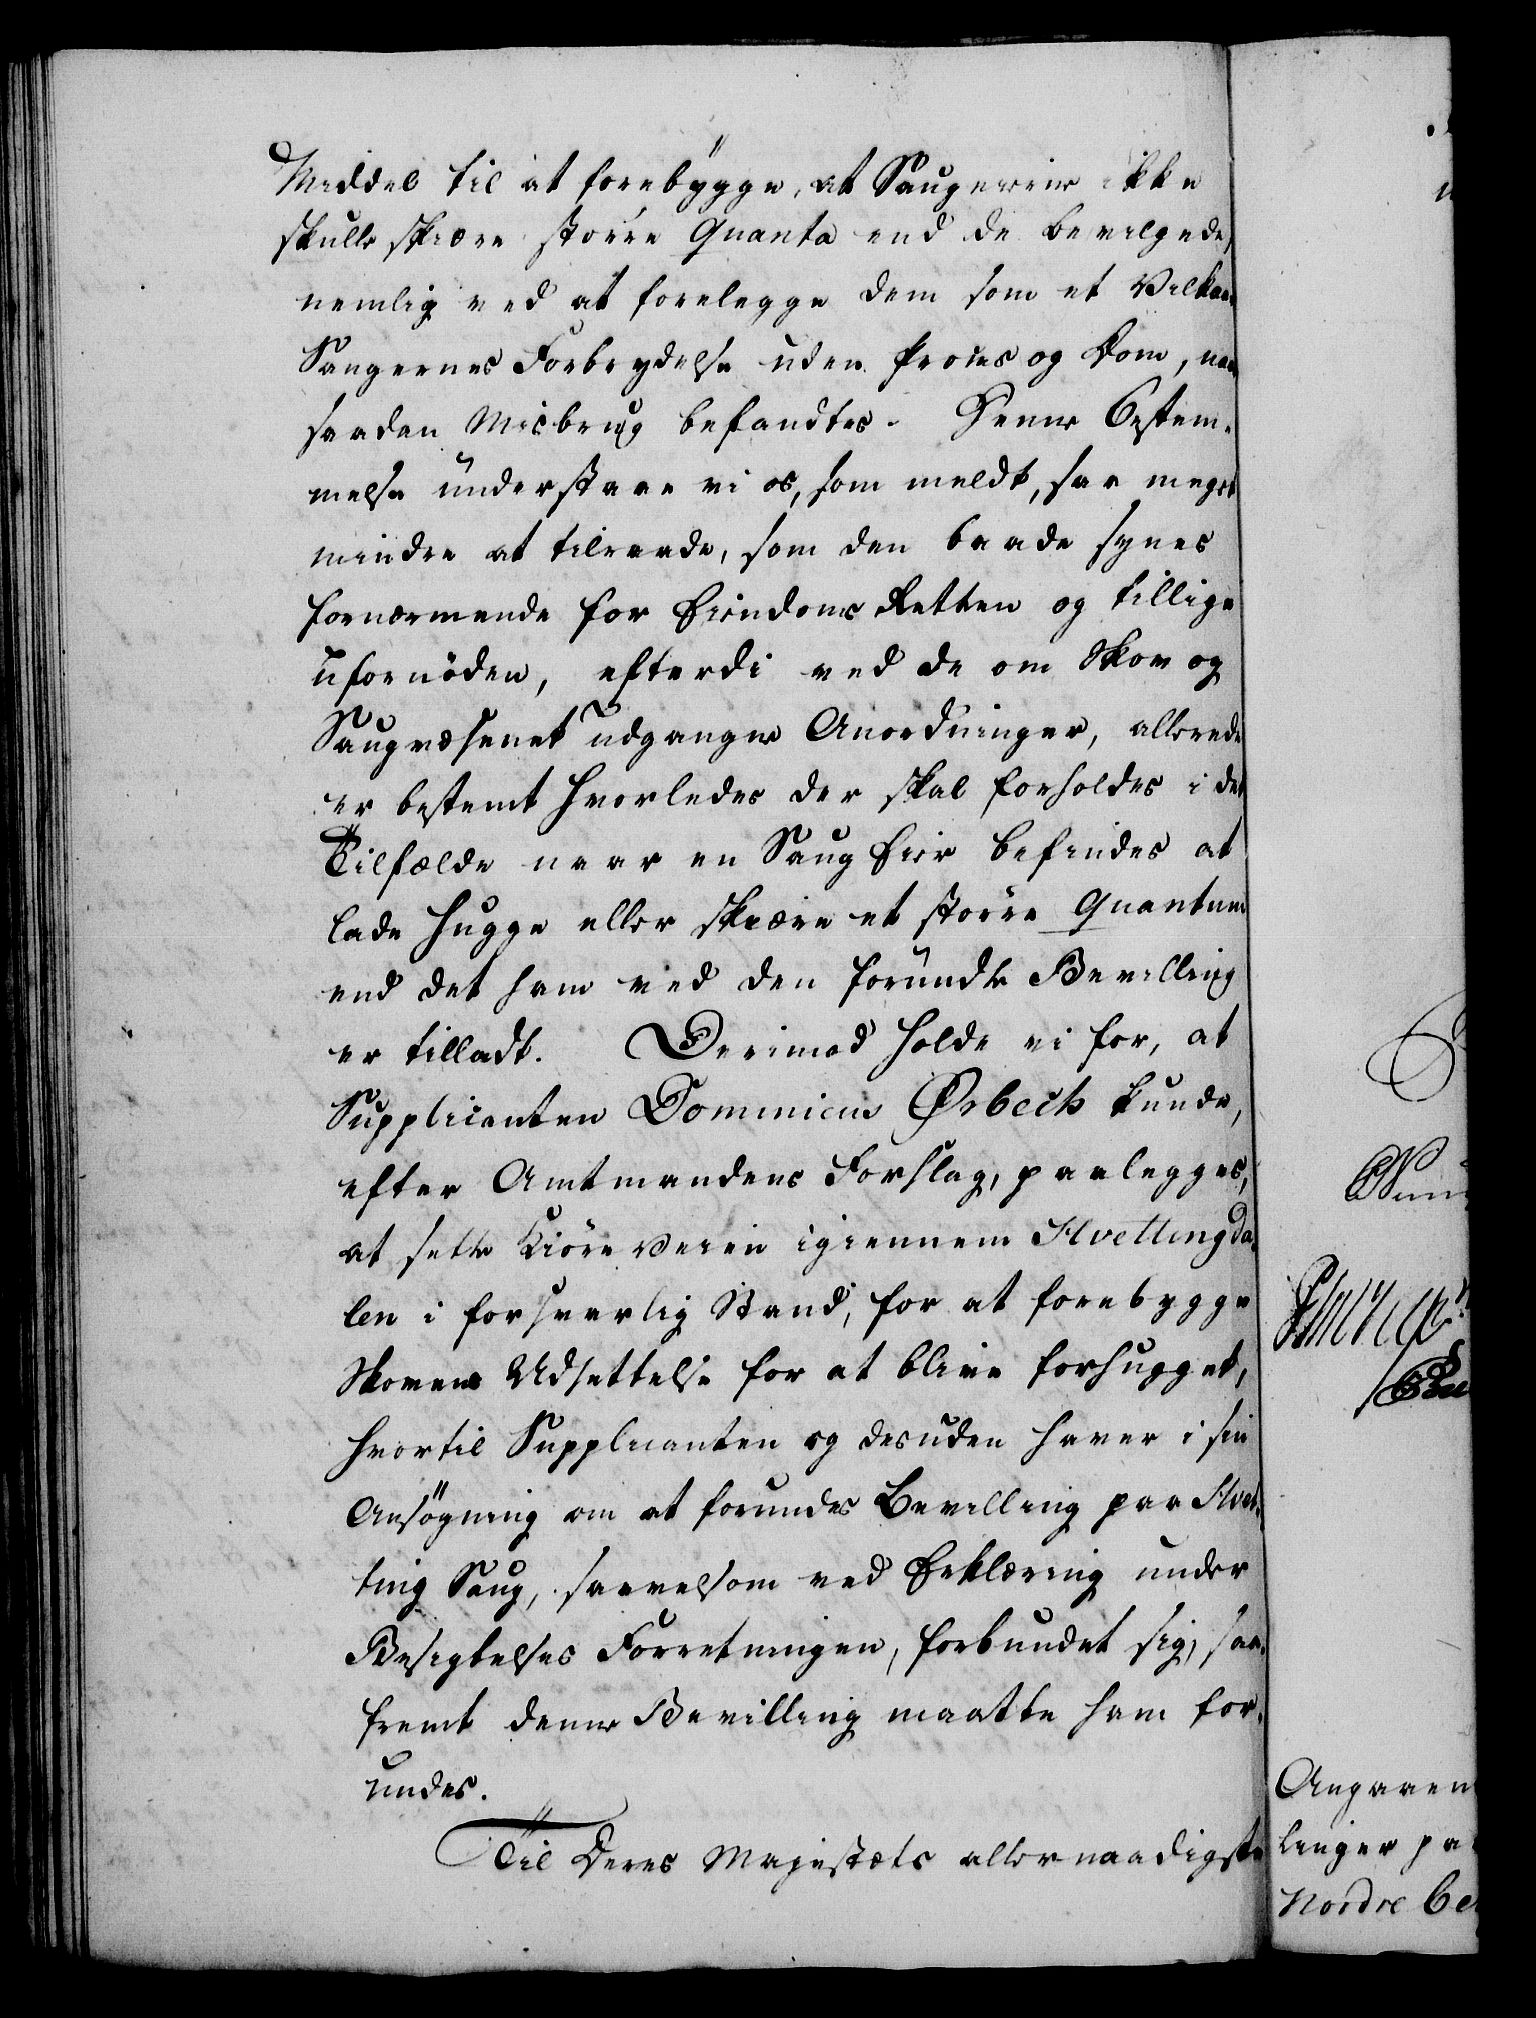 Middel til at forebÿgge, at Saugeierne ikke
skulle skiære større Quanta end de bevilgede,
nemlig ved at forelegge dem som et Vilkaar
Saugernes Forbrydelse uden Proces og Dom, naar
saadan Misbrug befandtes. Denne Bestem-
melse understaae vi os, som meldt, saa meget
mindre at tilraade, som den baade synes
fornærmende for Eiendoms Retten og tillige
ufornöden, efterdi ved de om Skov og
Saugvæsenet udgangne Anordninger, allerede
er bestemt hvorledes der skal forholdes i det
Tilfælde naar en Saug Eier befindes at
lade hugge eller skiære et større Quantum
end det ham ved den forundte Bevilling
er tilladt. Derimod holde vi for, at
Supplicanten Dominicus Ørbech kunde,
efter Amtmandens Forslag, paalegges,
at sette Kiöre Veien igiennem Hvettingda-
len i forsvarlig Stand, for at forebygge
Skovens Udsettelse for at blive forhugget,
hvortil Supplicanten og desuden haver i sin
Ansögning om at forundes Bevilling paa Hvet-
ting Saug, saavelsom ved Erklæring under
Besigtelses Forretningen, forbundet sig, saa-
fremt denne Bevilling maatte ham for-
undes.
Til Deres Majestæts allernaadigste
Angaaen
linger paa
Nordre Be